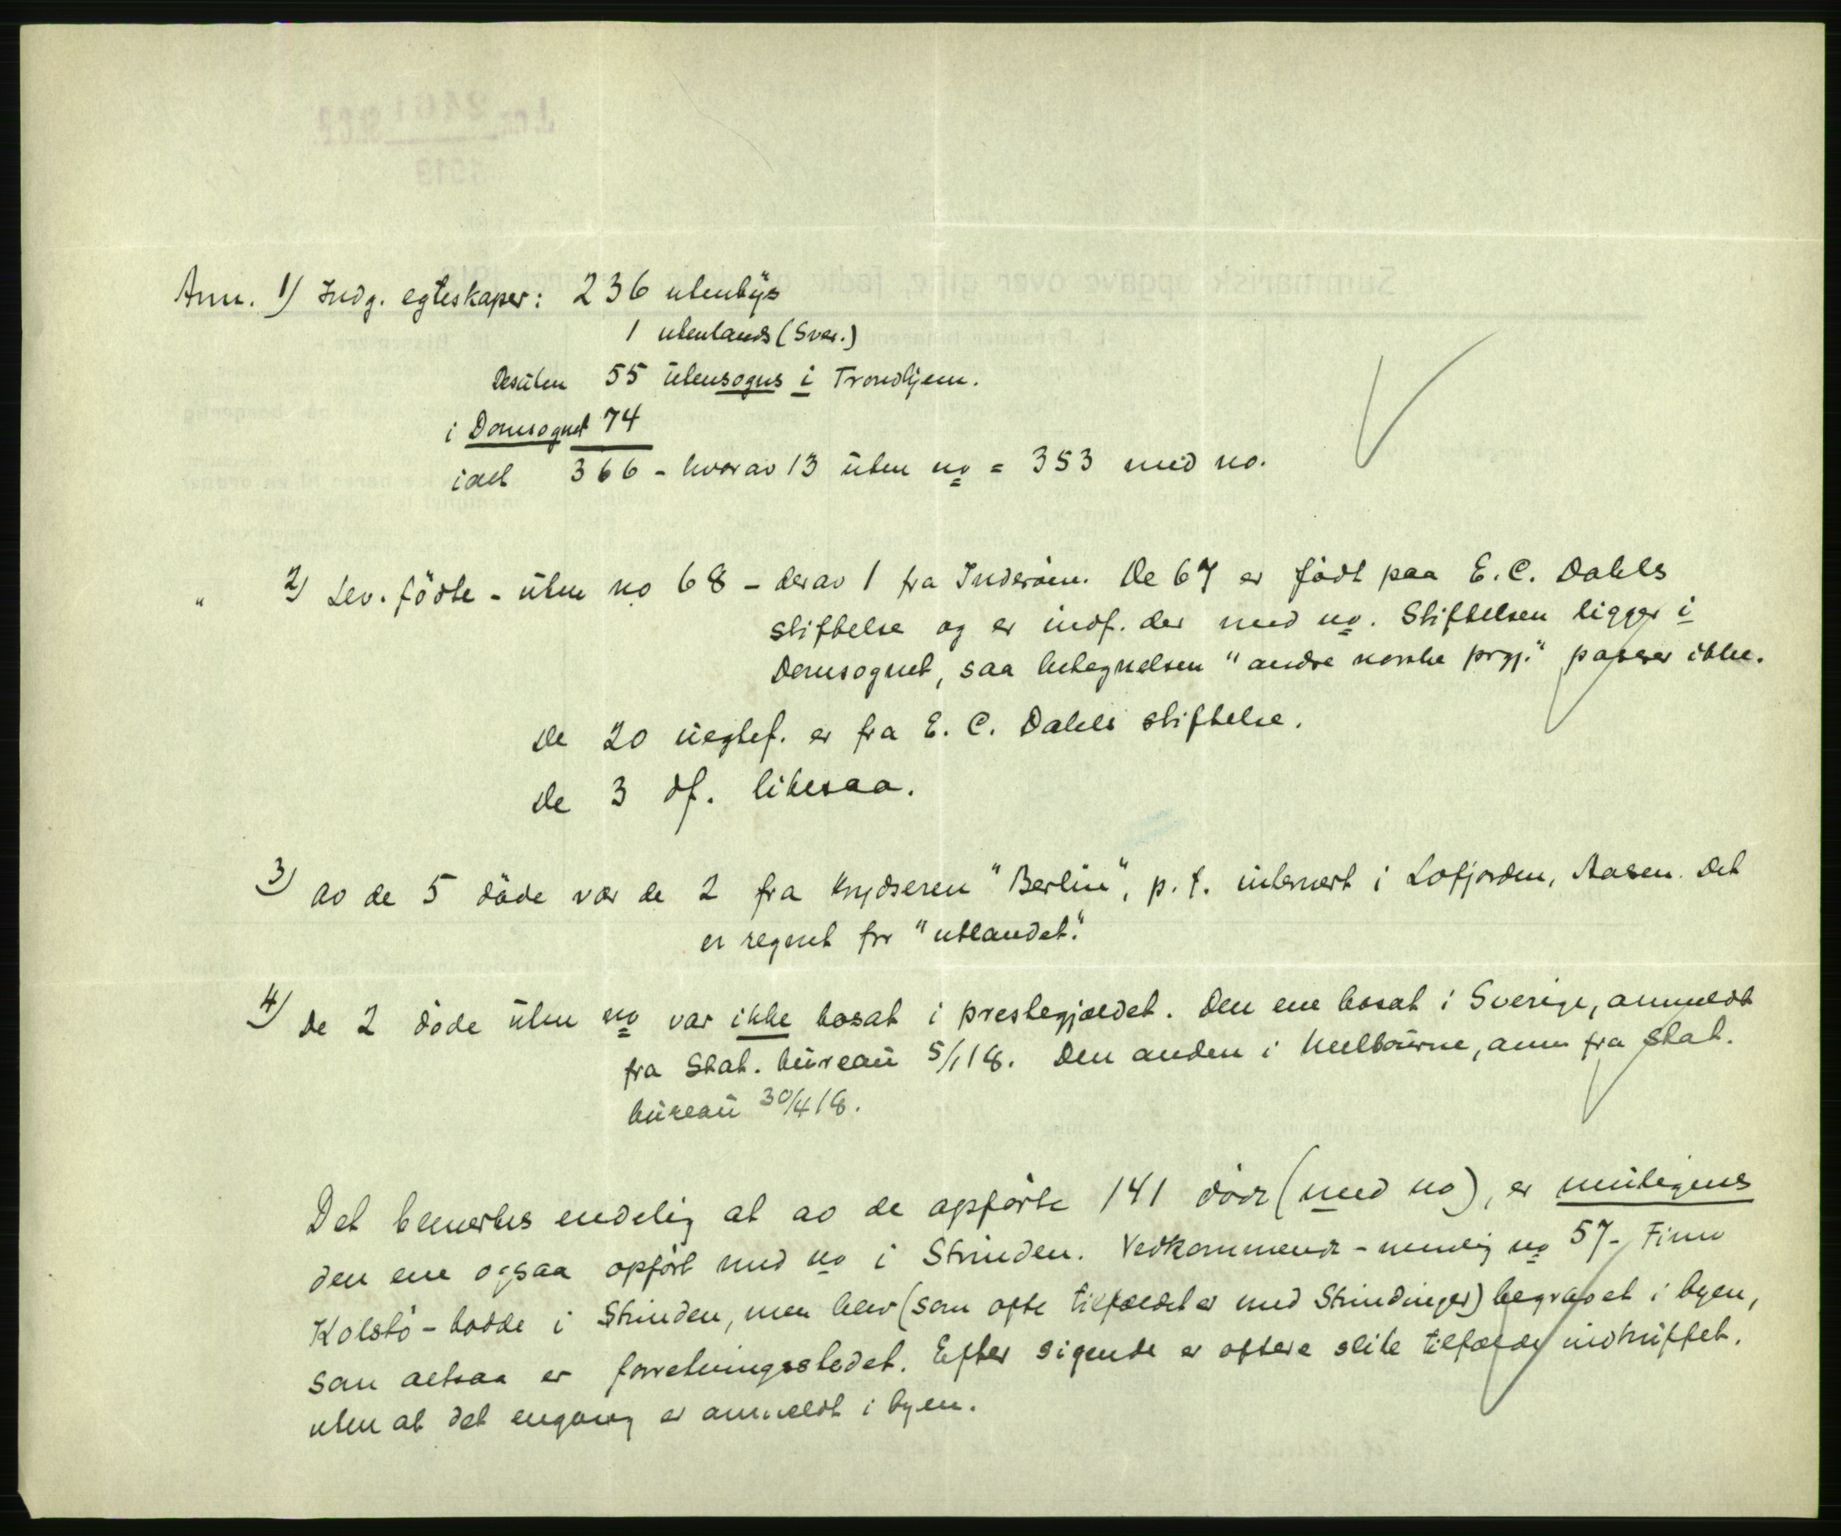 Anm. 1) Indg. egteskaper: 236 utenbys
1 utenlands (Sver.)
Desuten 55 utensogns i Trondhjem.
i Domsognet 74
ialt 366 - hvorav 13 uten no = 353 med no.
" 2) Lev. födte - uten no 68 - derav 1 fra Inderöen. De 67 er födt paa E. C. Dahls
stiftelse og er indf. der med no. Stiftelsen ligger i
Domsognet, saa betegnelsen "andre norske prgj." passer ikke.
De 20 uegtef. er fra E. C. Dahls stiftelse.
De 3 df. likesaa.
3) av de 5 döde var de 2 fra krydseren "Berlin", p. t. internert i Lofjorden, Aasen. Det
er regnet for "utlandet".
4) De 2 döde uten no var ikke bosat i prestegjældet. Den ene bosat i Sverige, anmeldt
fra Stat. bureau 5/1 18. Den anden i Melbourne, anm fra Stat.
bureau 30/4 18.
Det bemerkes endelig at av de opförte 141 döde (med no), er muligens
den ene ogsaa opfört med no i Strinden. Vedkommende - nemlig no 57 - Finn
Kolstö - bodde i Strinden, men blev (som ofte tilfældet er med Strindinger) begravet i byen,
som altsaa er forretningsstedet. Efter sigende er oftere slike tilfælde indtruffet.
uten at det engang er anmeldt i byen.